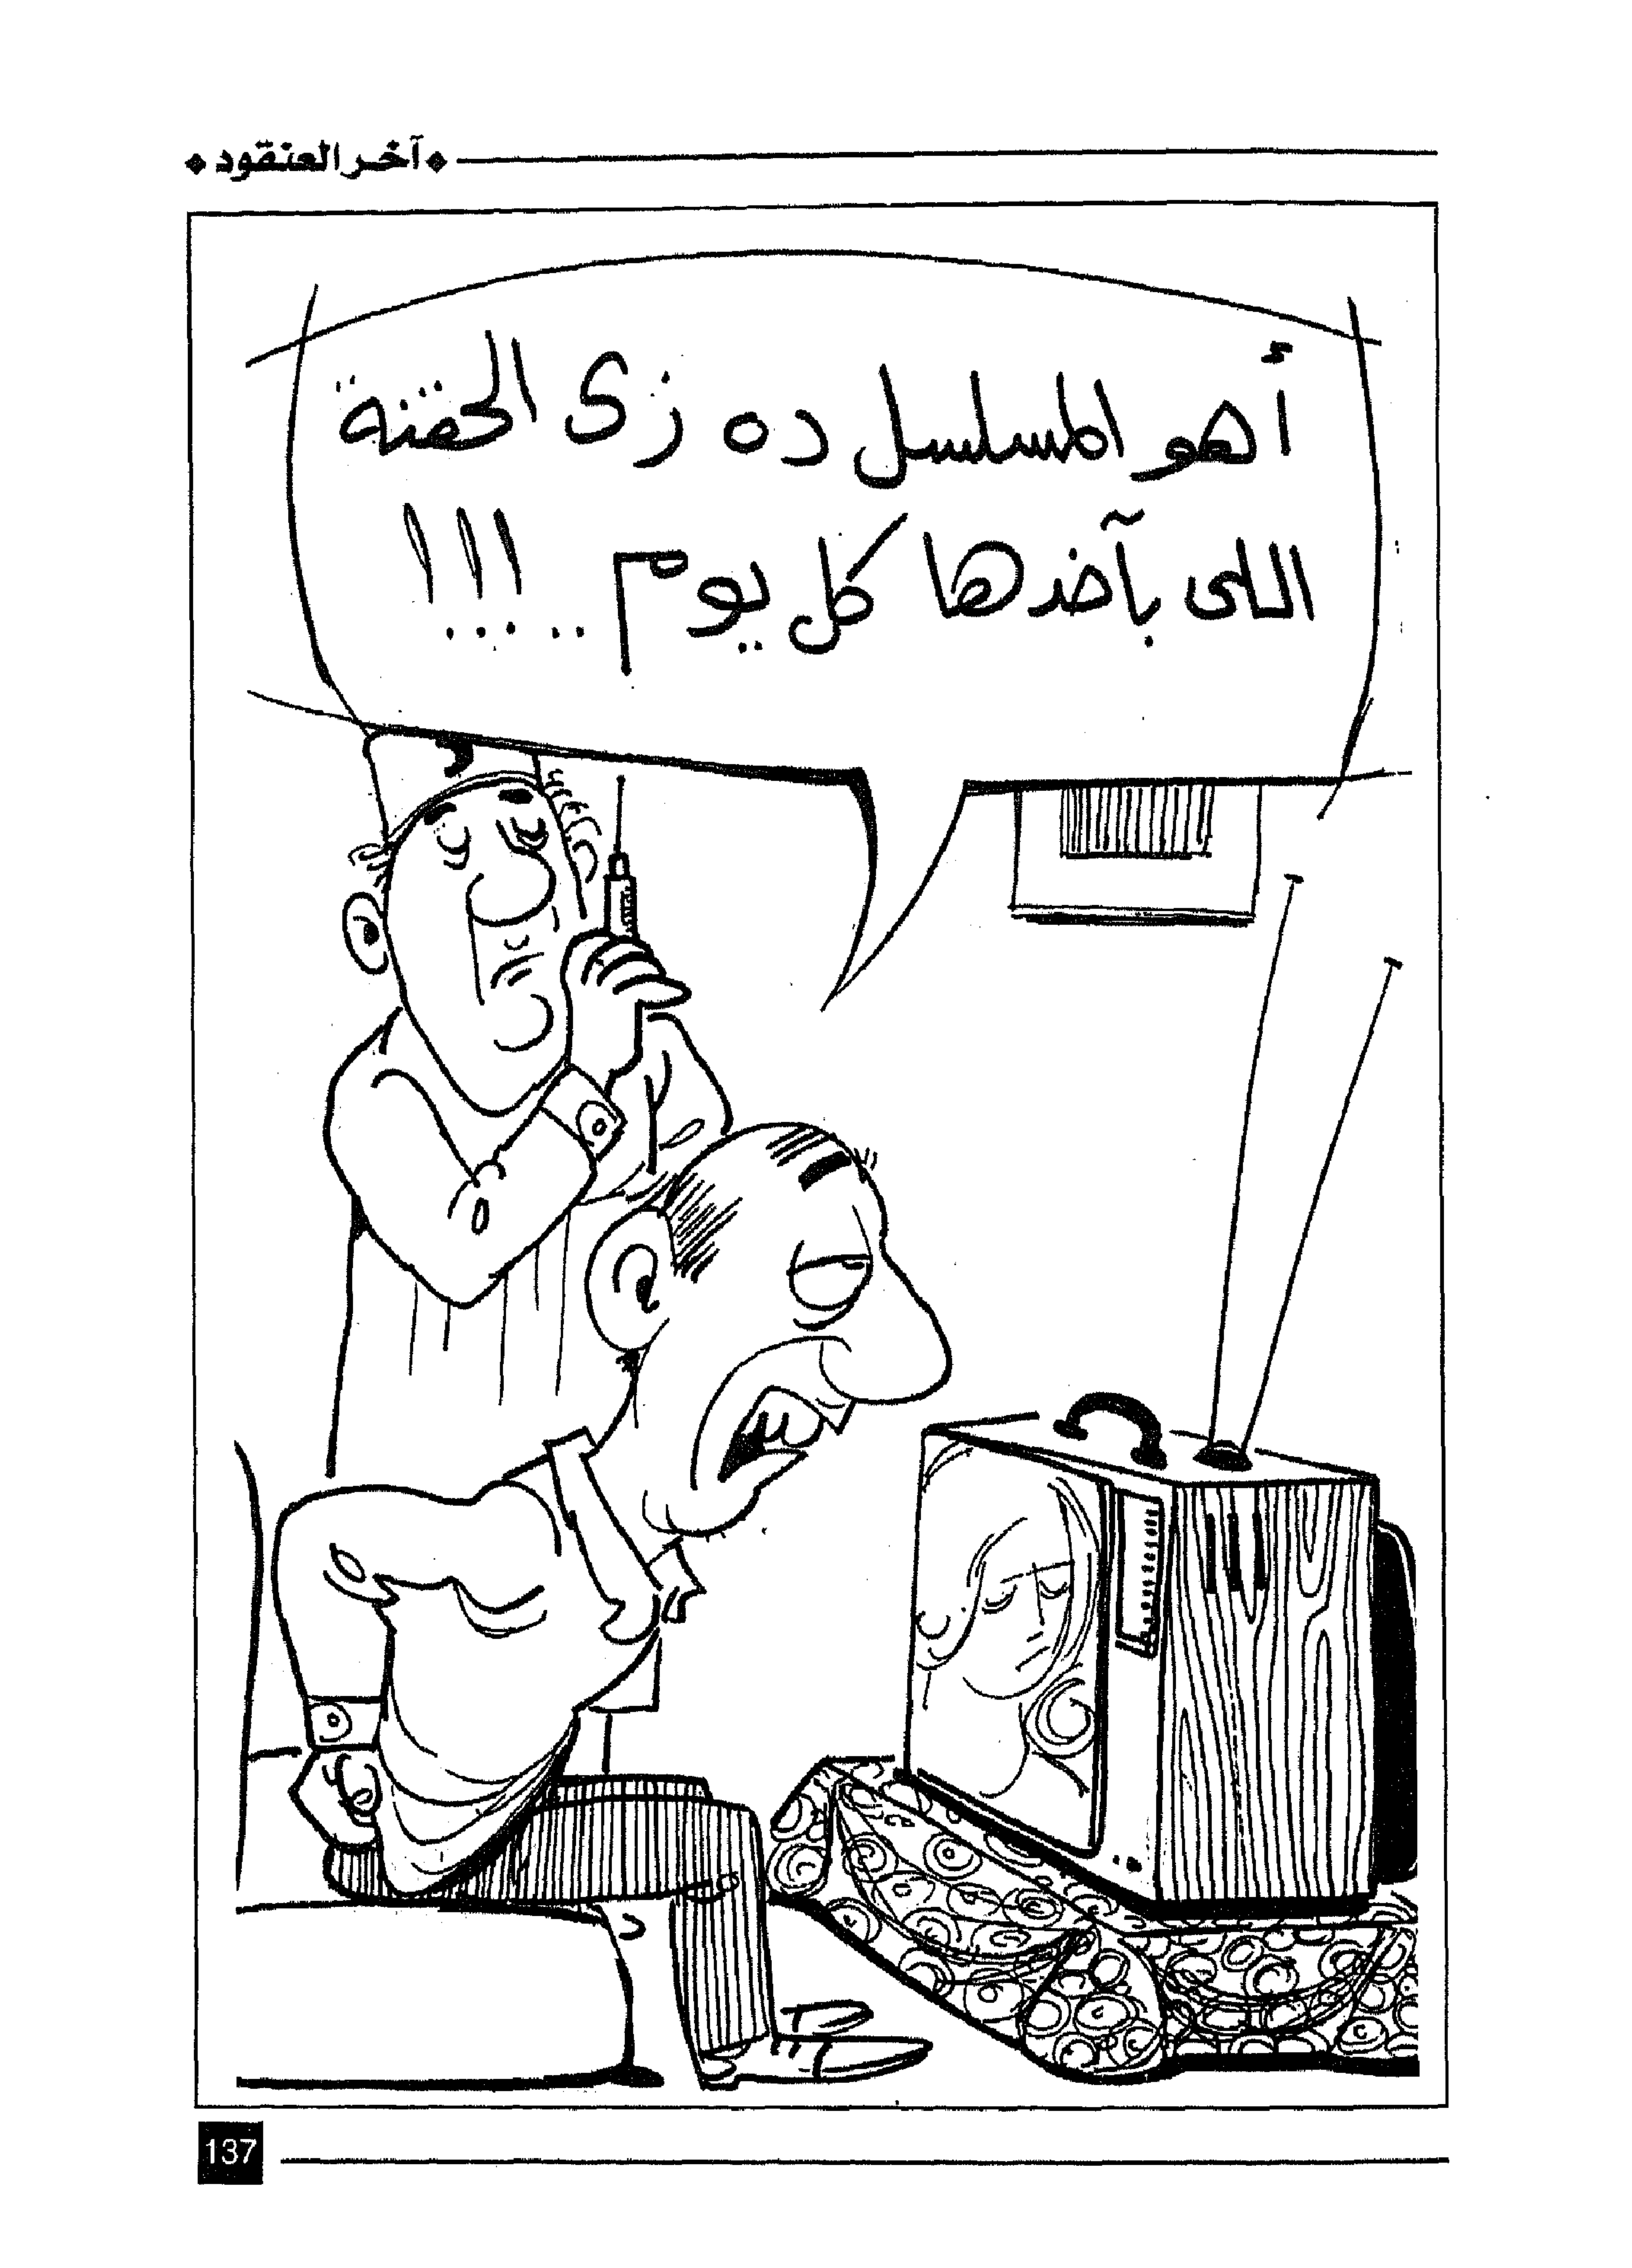 ❖ آخر العنقود ❖
أهو المسلسل ده زى الحقنة
اللى بآخدها كل يوم ..... !!!
137